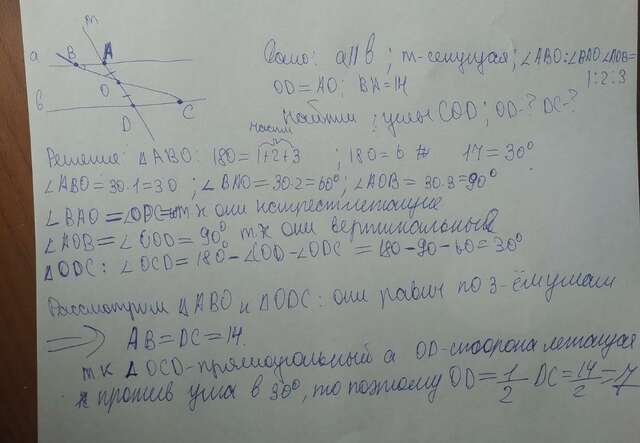 m
a
B
A
O
в
D
C
Дано: a||b ; m-секущая; ∠ABO:∠BAO:∠AOB=
1:2:3
OD=AO; BA=14
Найти: углы COD; OD-? DC-?
части
Решение: △ABO: 180=1+2+3 ; 180=6 17=30°
∠ABO=30·1=30 ; ∠BAO=30·2=60°; ∠AOB=30·3=90°
∠BAO=∠ODC т.к они накрест лежащие
∠AOB=∠COD=90° т.к они вертикальные
△ODC: ∠OCD=180-∠COD-∠ODC=180-90-60=30°
Рассмотрим △ABO и △ODC: они равны по 3-ём углам
⟹ AB=DC=14.
тк △OCD-прямоугольный а OD-сторона лежащая
против угла в 30°, то поэтому OD=1/2 DC=14/2=7